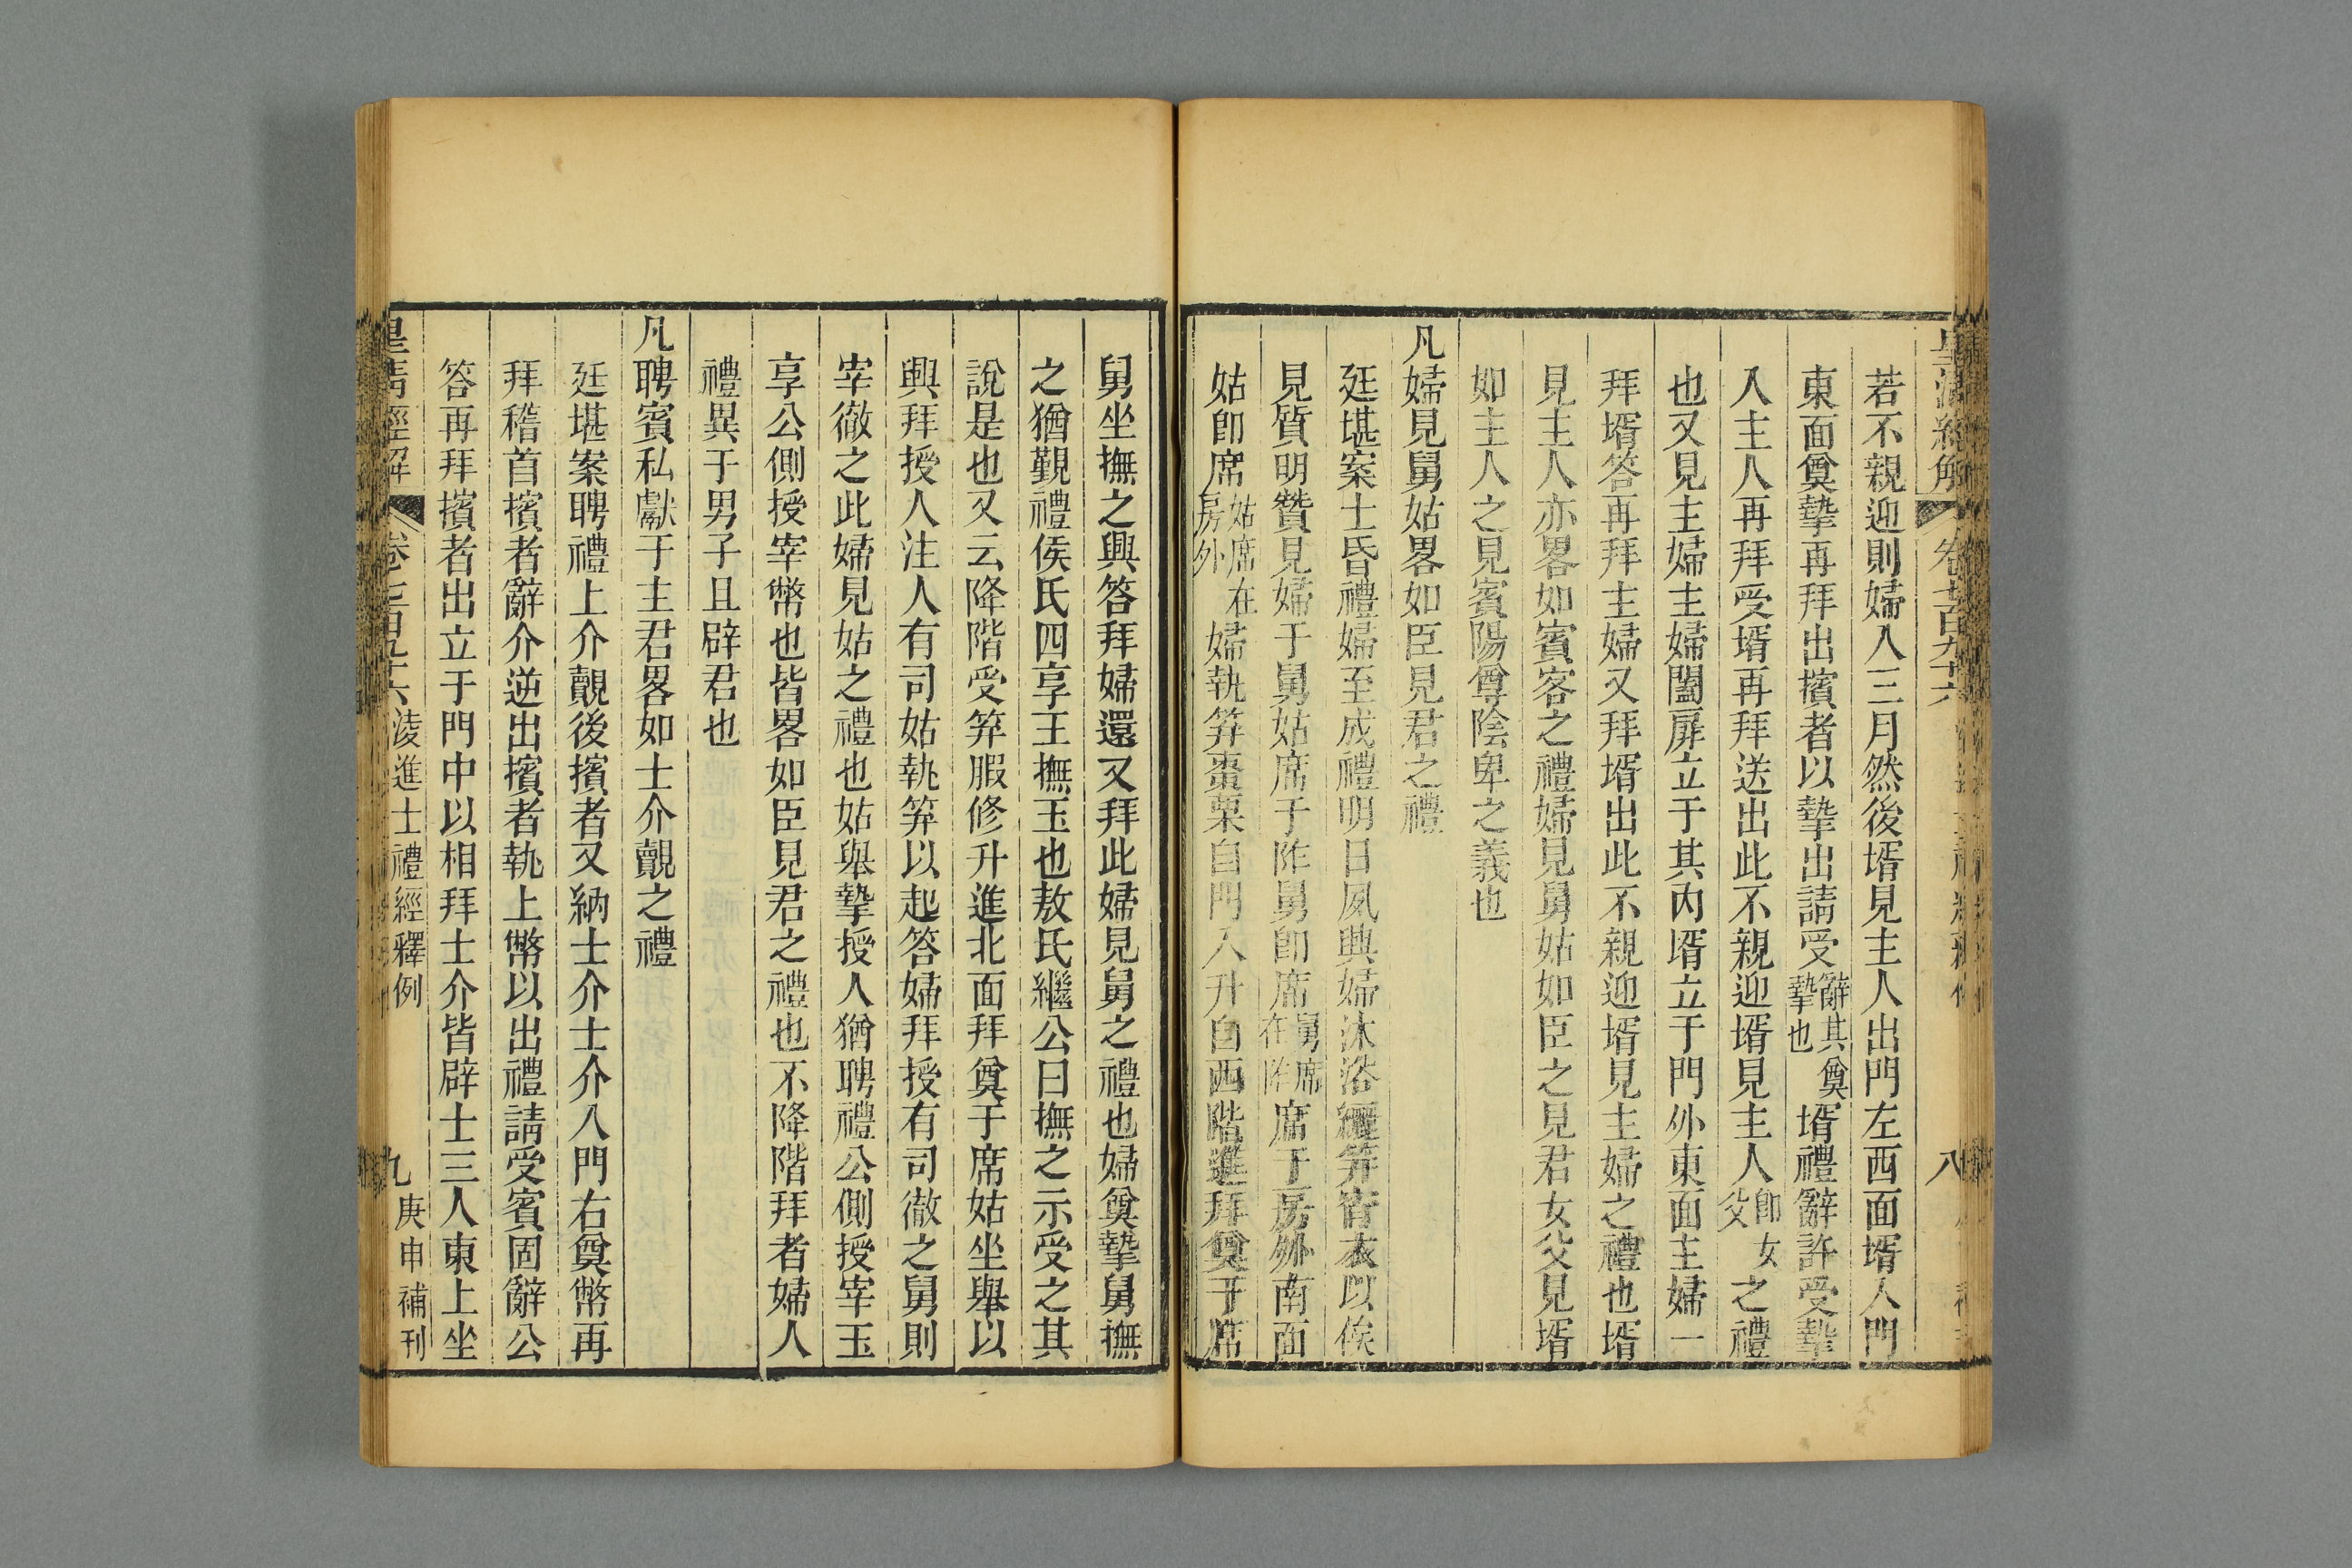 皇清經解 卷七百九十六 八
若不親迎則婦入三月然後壻見主人出門左西面壻入門
東面奠摯再拜出擯者以摯出請受辭其奠摯也壻禮辭許受摯
入主人再拜受壻再拜送出此不親迎壻見主人卽女父之禮
也又見主婦主婦闔扉立于其內壻立于門外東面主婦一
拜壻答再拜主婦又拜壻出此不親迎壻見主婦之禮也壻
見主人亦畧如賓客之禮婦見舅姑如臣之見君女父見壻
如主人之見賓陽尊陰卑之義也
凡婦見舅姑畧如臣見君之禮
廷堪案士昏禮婦至成禮明日夙興婦沐浴纚笄宵衣以俟
見質明贊見婦于舅姑席于阼舅卽席舅席在阼席于房外南面
姑卽席姑席在房外婦執笲棗栗自門入升自西階進拜奠于席
舅坐撫之興答拜婦還又拜此婦見舅之禮也婦奠摯舅撫
之猶覲禮侯氏四享王撫玉也敖氏繼公曰撫之示受之其
說是也又云降階受笲腶修升進北面拜奠于席姑坐舉以
興拜授人注人有司姑執笲以起答婦拜授有司徹之舅則
宰徹之此婦見姑之禮也姑舉摯授人猶聘禮公側授宰玉
享公側授宰幣也皆畧如臣見君之禮也不降階拜者婦人
禮異于男子且辟君也
凡聘賓私獻于主君畧如士介覿之禮
廷堪案聘禮上介覿後擯者又納士介士介入門右奠幣再
拜稽首擯者辭介逆出擯者執上幣以出禮請受賓固辭公
答再拜擯者出立于門中以相拜士介皆辟士三人東上坐
皇清經解 卷七百九十六 淩進士禮經釋例 九 庚申補刊